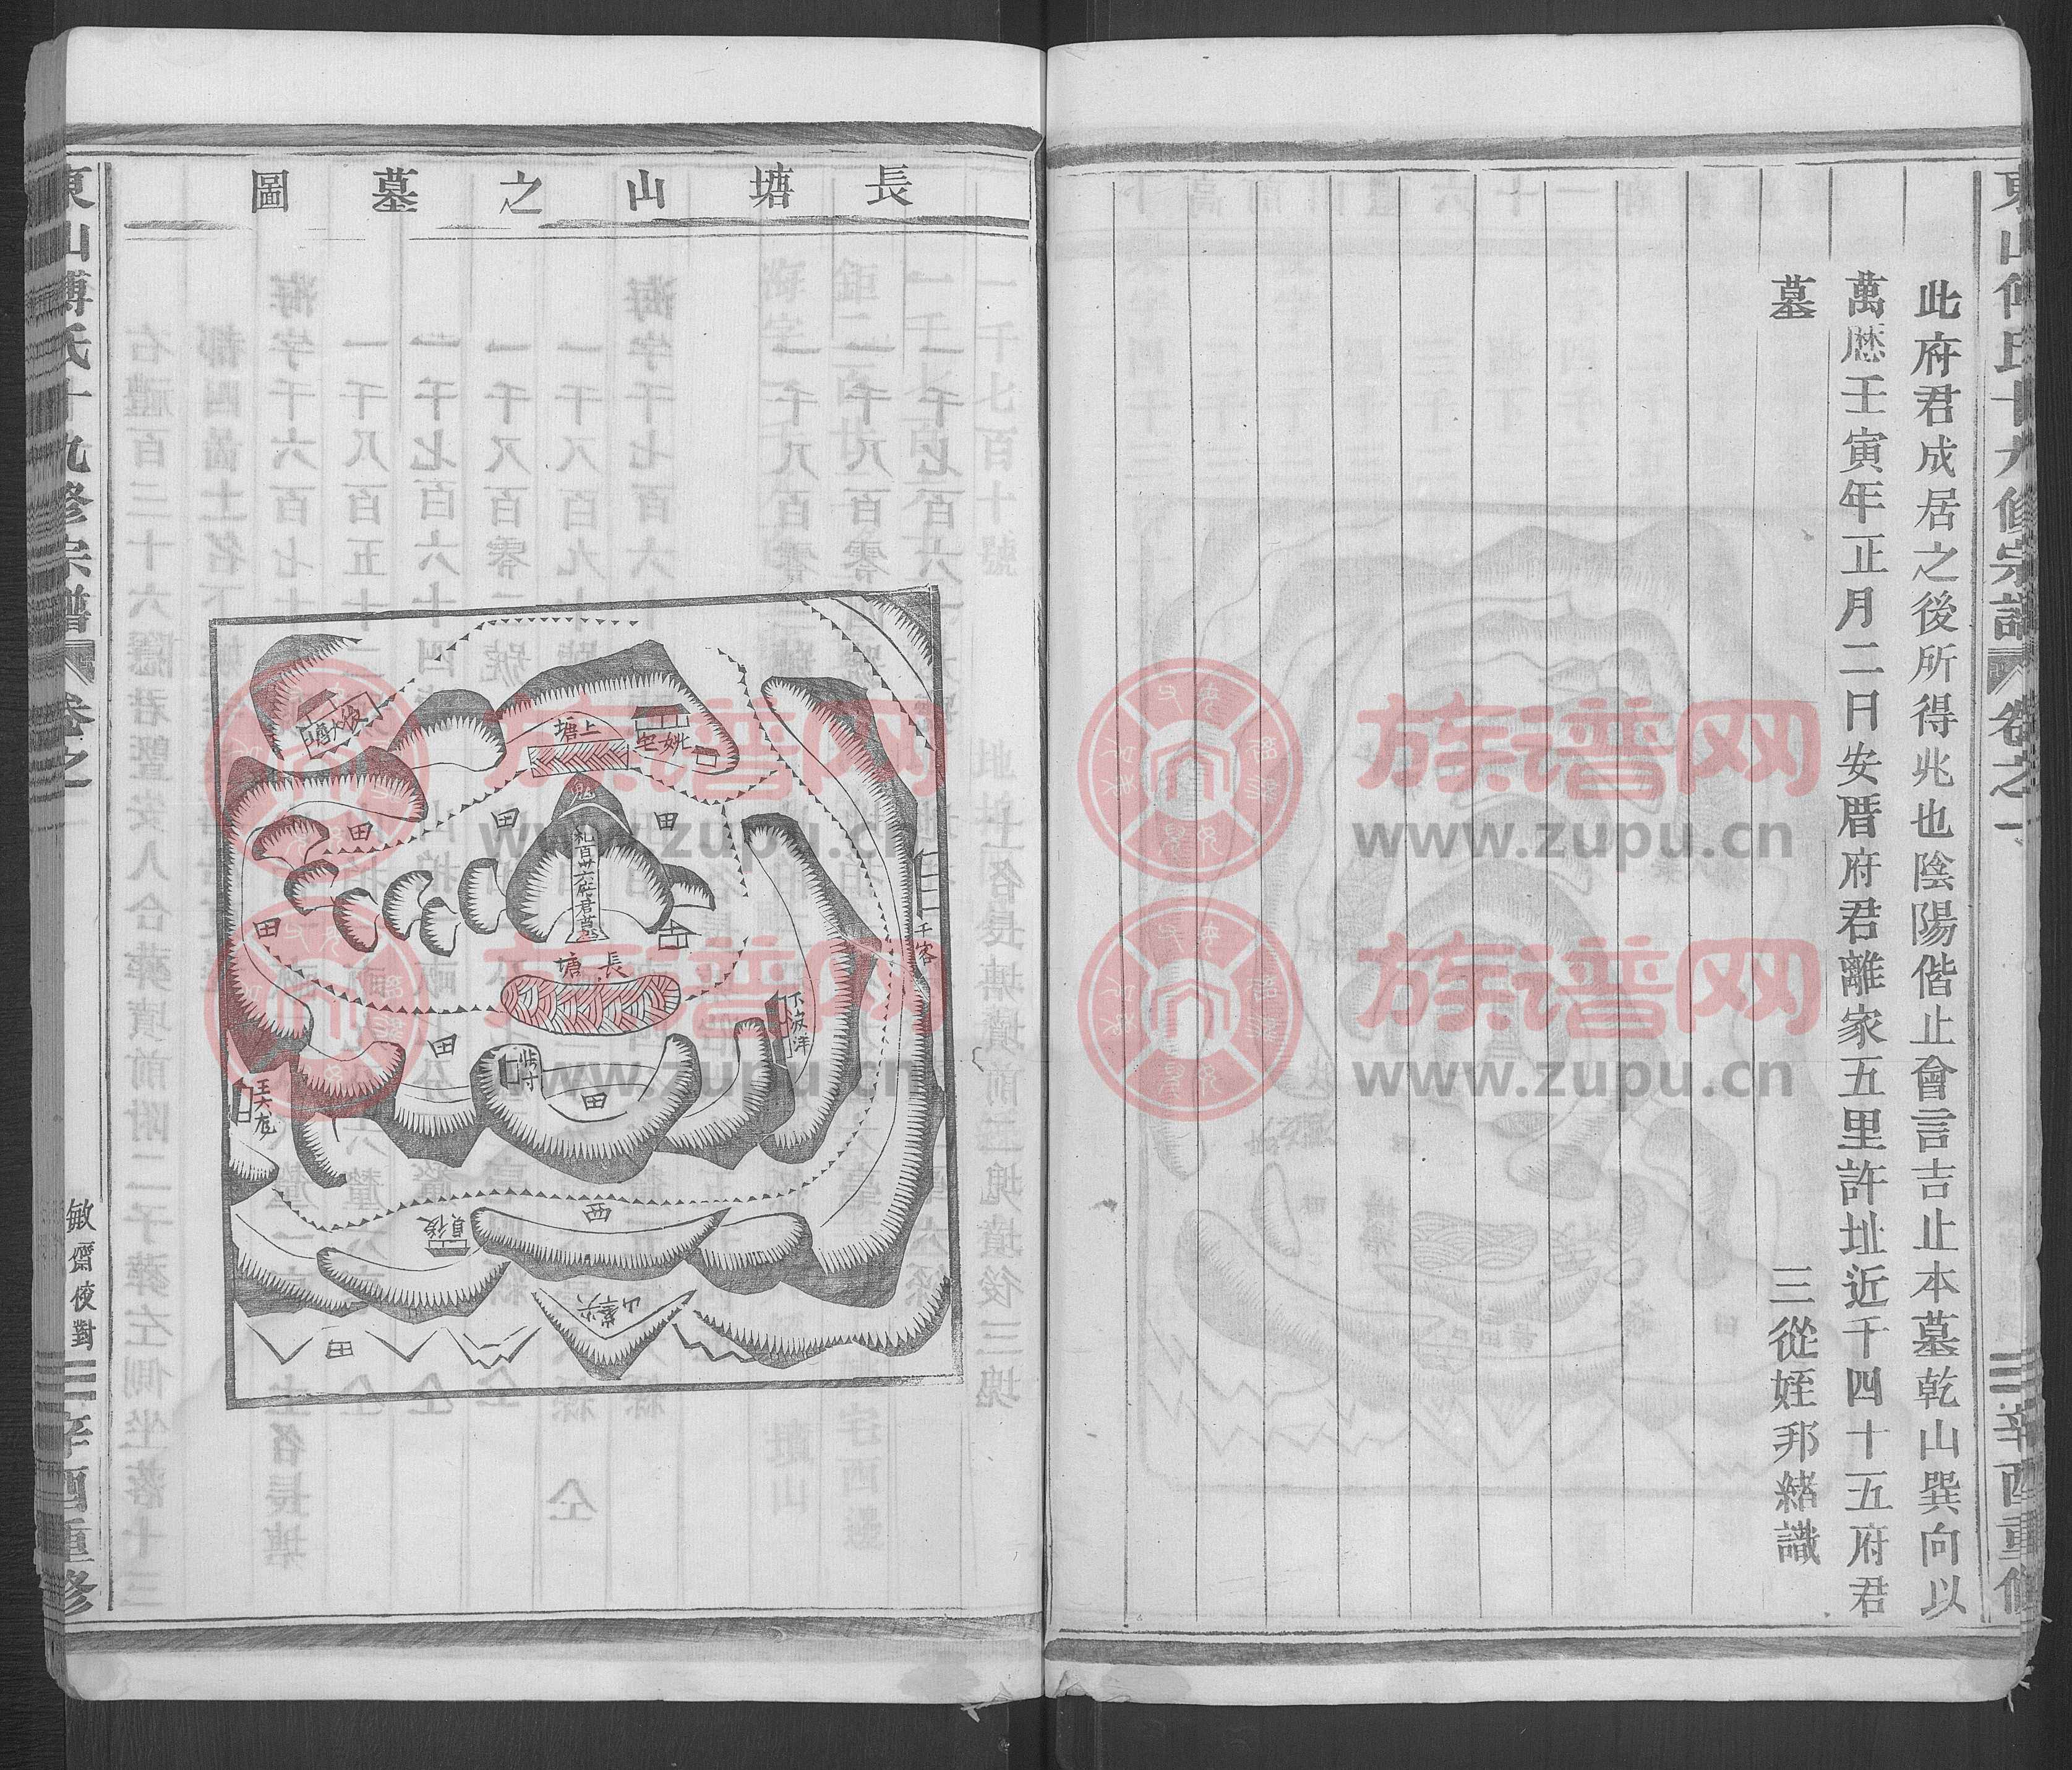 東山傅氏十九修宗譜 卷之一 三 辛酉重修
此府君成居之後所得兆也陰陽偕止會言吉止本墓乾山巽向以
萬厯壬寅年正月二日安厝府君離家五里許址近千四十五府君
墓 三從姪邦緒識
長塘山之墓圖
上塘
姚宅
後水塘
田
田
田
鬼
礼百卅六府君墓
田
長塘
下波洋
田
田
王六尨
後頁
西
尖峯山
田
東山傅氏十九修宗譜 卷之一 敏齋校對 三 辛酉重修
族谱网
www.zupu.cn
族谱网
www.zupu.cn
族谱网
www.zupu.cn
族谱网
www.zupu.cn